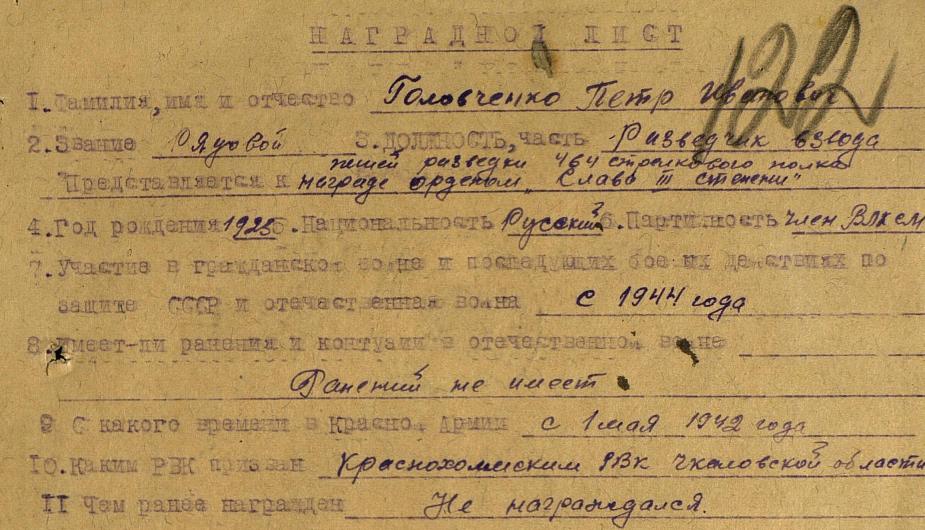 122
НАГРАДНОЙ ЛИСТ
1. Фамилия, имя и отчество Головченко Петр Иванович
2. Звание Рядовой 3. ДОЛЖНОСТЬ, часть Разведчик взвода
пешей разведки 464 стрелкового полка
Представляется к награде орденом „Слава III степени"
4. Год рождения 1925 5. Национальность Русский 6. Партийность член ВЛКСМ
7. Участие в гражданской войне и последующих боевых действиях по
защите СССР и отечественная война с 1944 года
8. Имеет-ли ранения и контузии в отечественной войне
Ранений не имеет
9 С какого времени в Красной Армии с 1 мая 1942 года
10. Каким РВК призван Краснохолмским РВК Чкаловской области
11 Чем ранее награжден Не награждался.